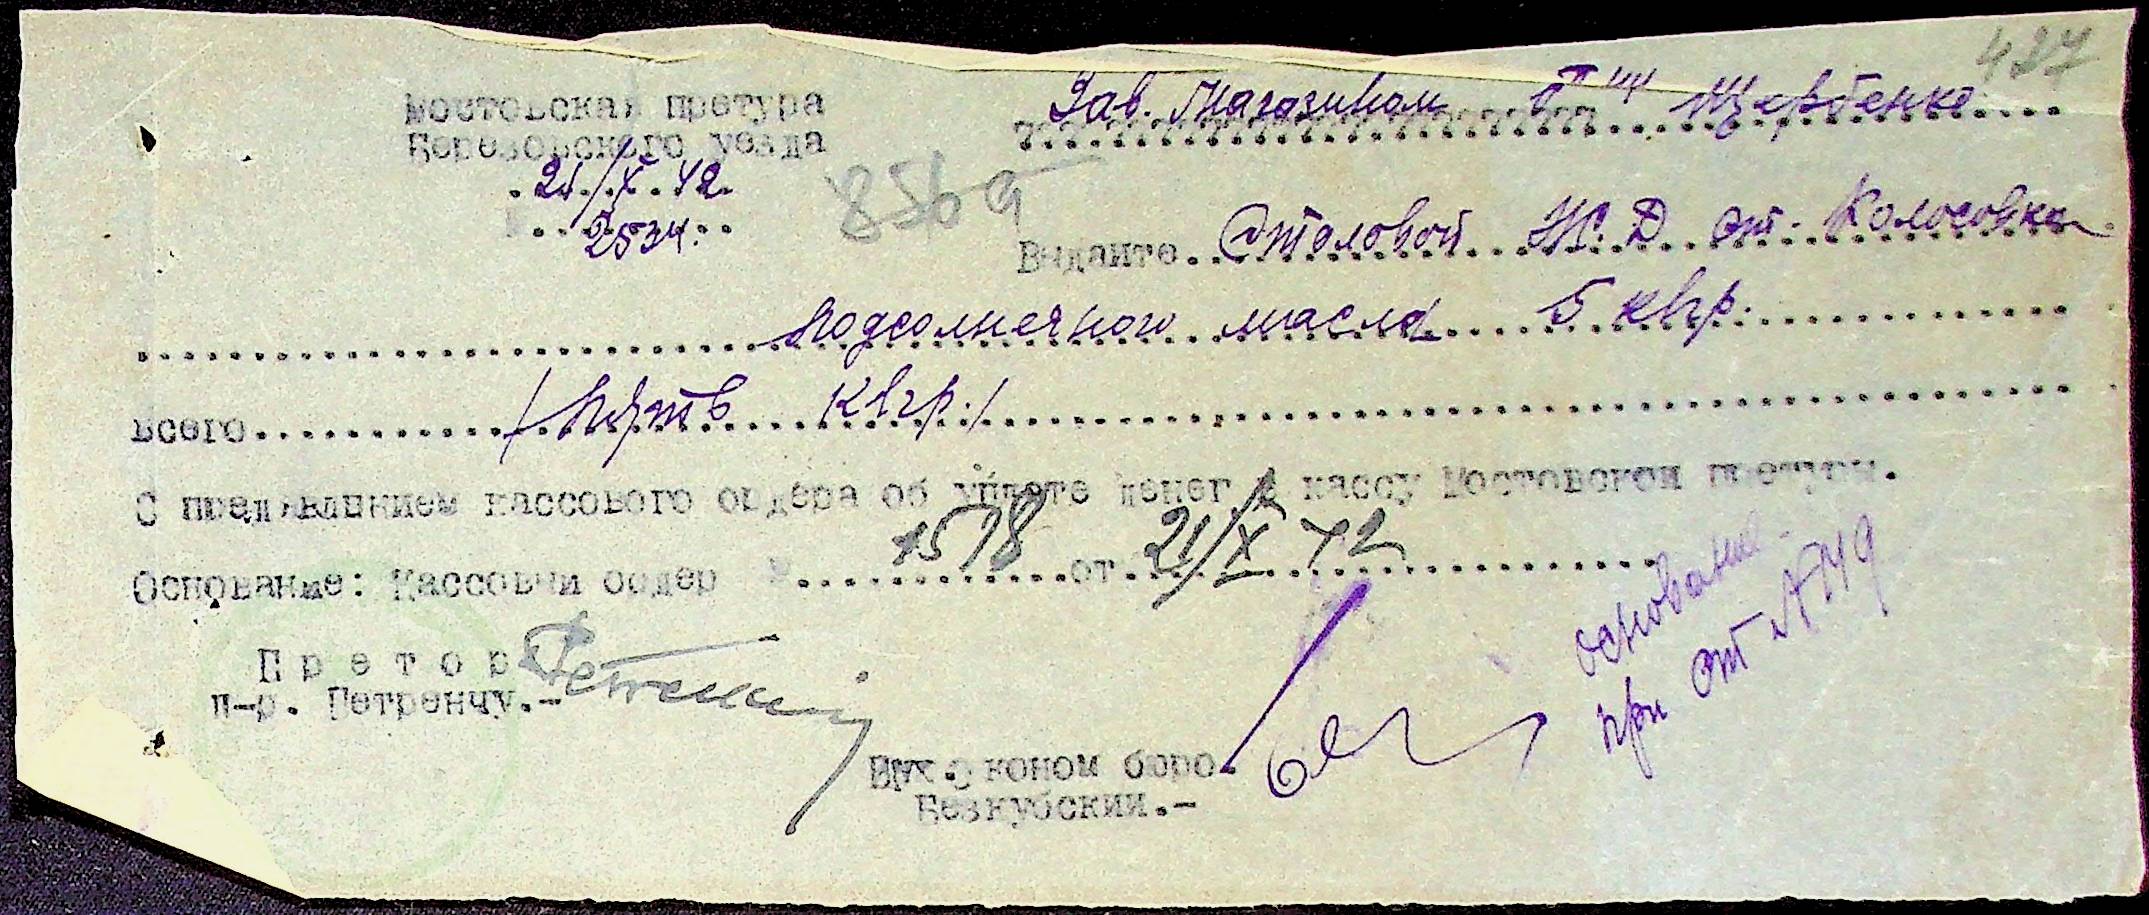 427
Мостовская претура
Березовского уезда
Зав. Магазином Щербенко
21/X 42.
2534.
856
Выдайте Столовой Ж. Д. ст. Колосовка
подсолнечного масла 5 клгр.
Всего /пять клгр./
С пред'явлением кассового ордера об уплате денег в кассу Мостовской претуры.
Основание: Кассовый ордер № 1578 от 21/X 42
основание
при от № 149
Претор
п-р. Петренчу.-
Нач. эконом бюро
Безкубский.-